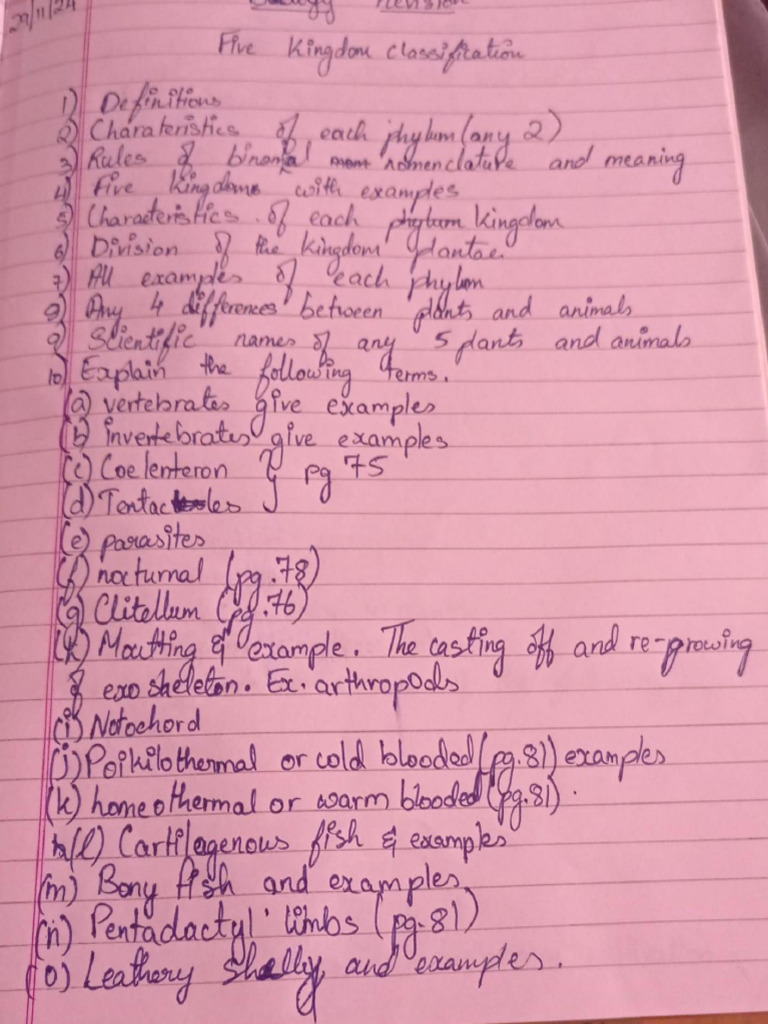 29/11/24
Biology Revision
Five Kingdom Classification
1) Definitions
2) Charateristics of each phylum (any 2)
3) Rules of binomial nomenclature and meaning
4) Five kingdoms with examples
5) Characteristics of each phylum kingdom
6) Division of the kingdom plantae.
7) All examples of each phylum
8) Any 4 differences between plants and animals
9) Scientific names of any 5 plants and animals
10) Explain the following terms.
(a) vertebrates give examples
(b) invertebrates give examples
(c) Coelenteron } pg 75
(d) Tentacles
(e) parasites
(f) nocturnal (pg.78)
(g) Clitellum (pg.76)
(h) Moulting & example. The casting off and re-growing
of exo skeleton. Ex. arthropods
(i) Notochord
(j) Poikilothermal or cold blooded (pg.81) examples
(k) homeothermal or warm blooded (pg.81).
(l) Cartilagenous fish & examples
(m) Bony fish and examples
(n) Pentadactyl limbs (pg.81)
(o) Leathery shelly and examples.